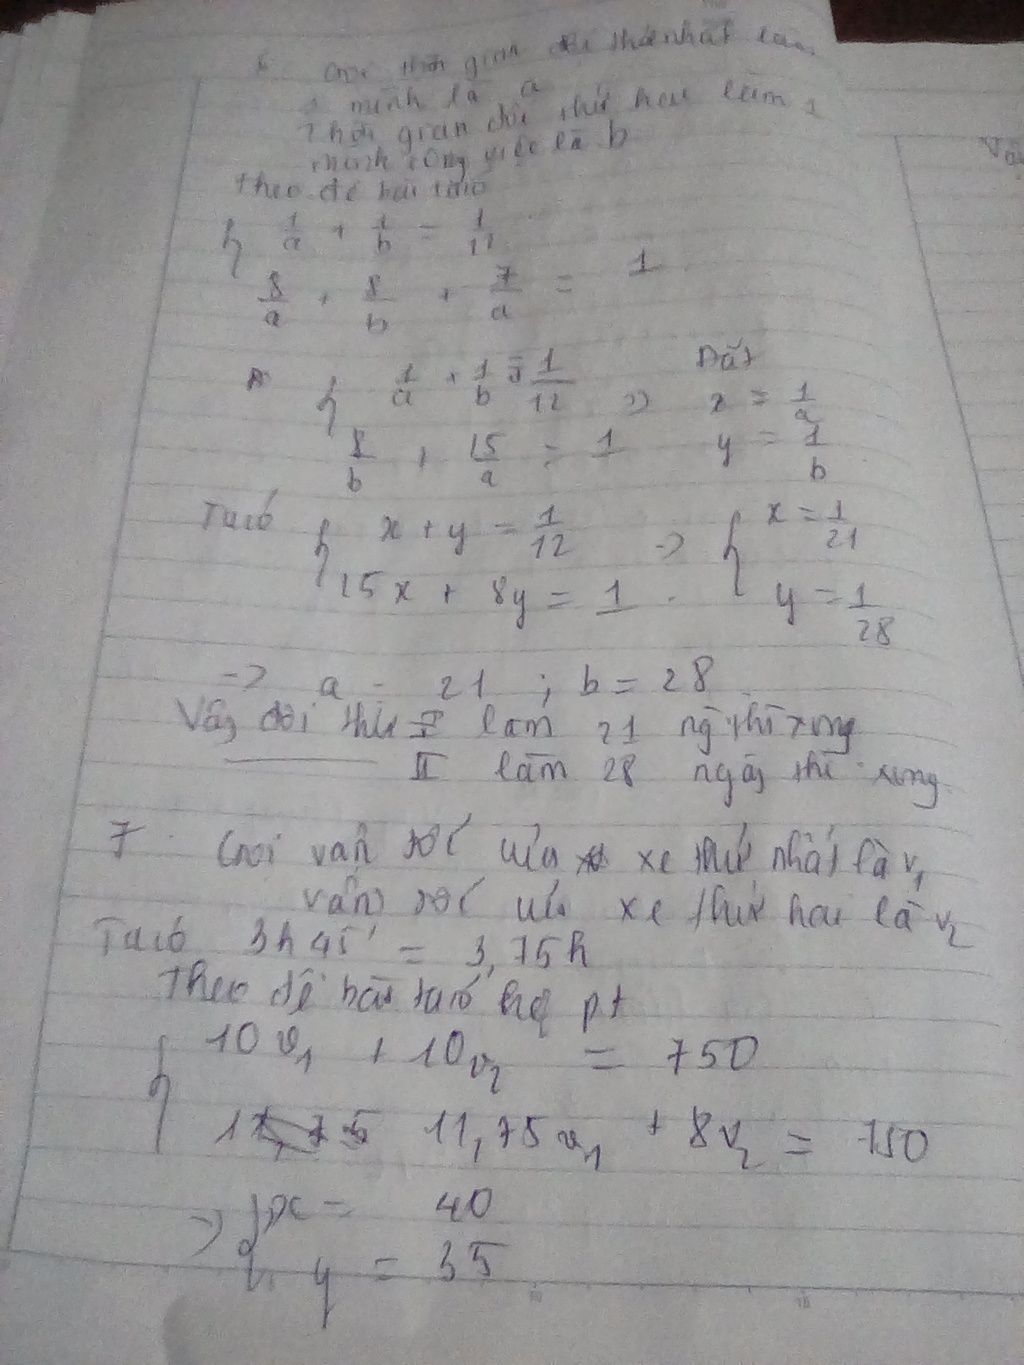 Gọi thời gian đội thứ nhất làm
1 mình là a
Thời gian đội thứ hai làm 1
mình công việc là b
Theo đề bài ta có
{ 1/a + 1/b = 1/12
8/a + 8/b + 7/a = 1
{ 1/a + 1/b = 1/12 => Đặt x = 1/a
8/b + 15/a = 1 y = 1/b
Ta có { x + y = 1/12 => { x = 1/21
15x + 8y = 1 y = 1/28
=> a = 21 ; b = 28
Vậy đội thứ I làm 21 ng thì xong
II làm 28 ngày thì xong
7. Gọi vận tốc của xe thứ nhất là v1
vận tốc của xe thứ hai là v2
Ta có 3h45' = 3,75h
Theo đề bài ta có hệ pt
{ 10v1 + 10v2 = 750
11,75v1 + 8v2 = 750
=> { x = 40
y = 35